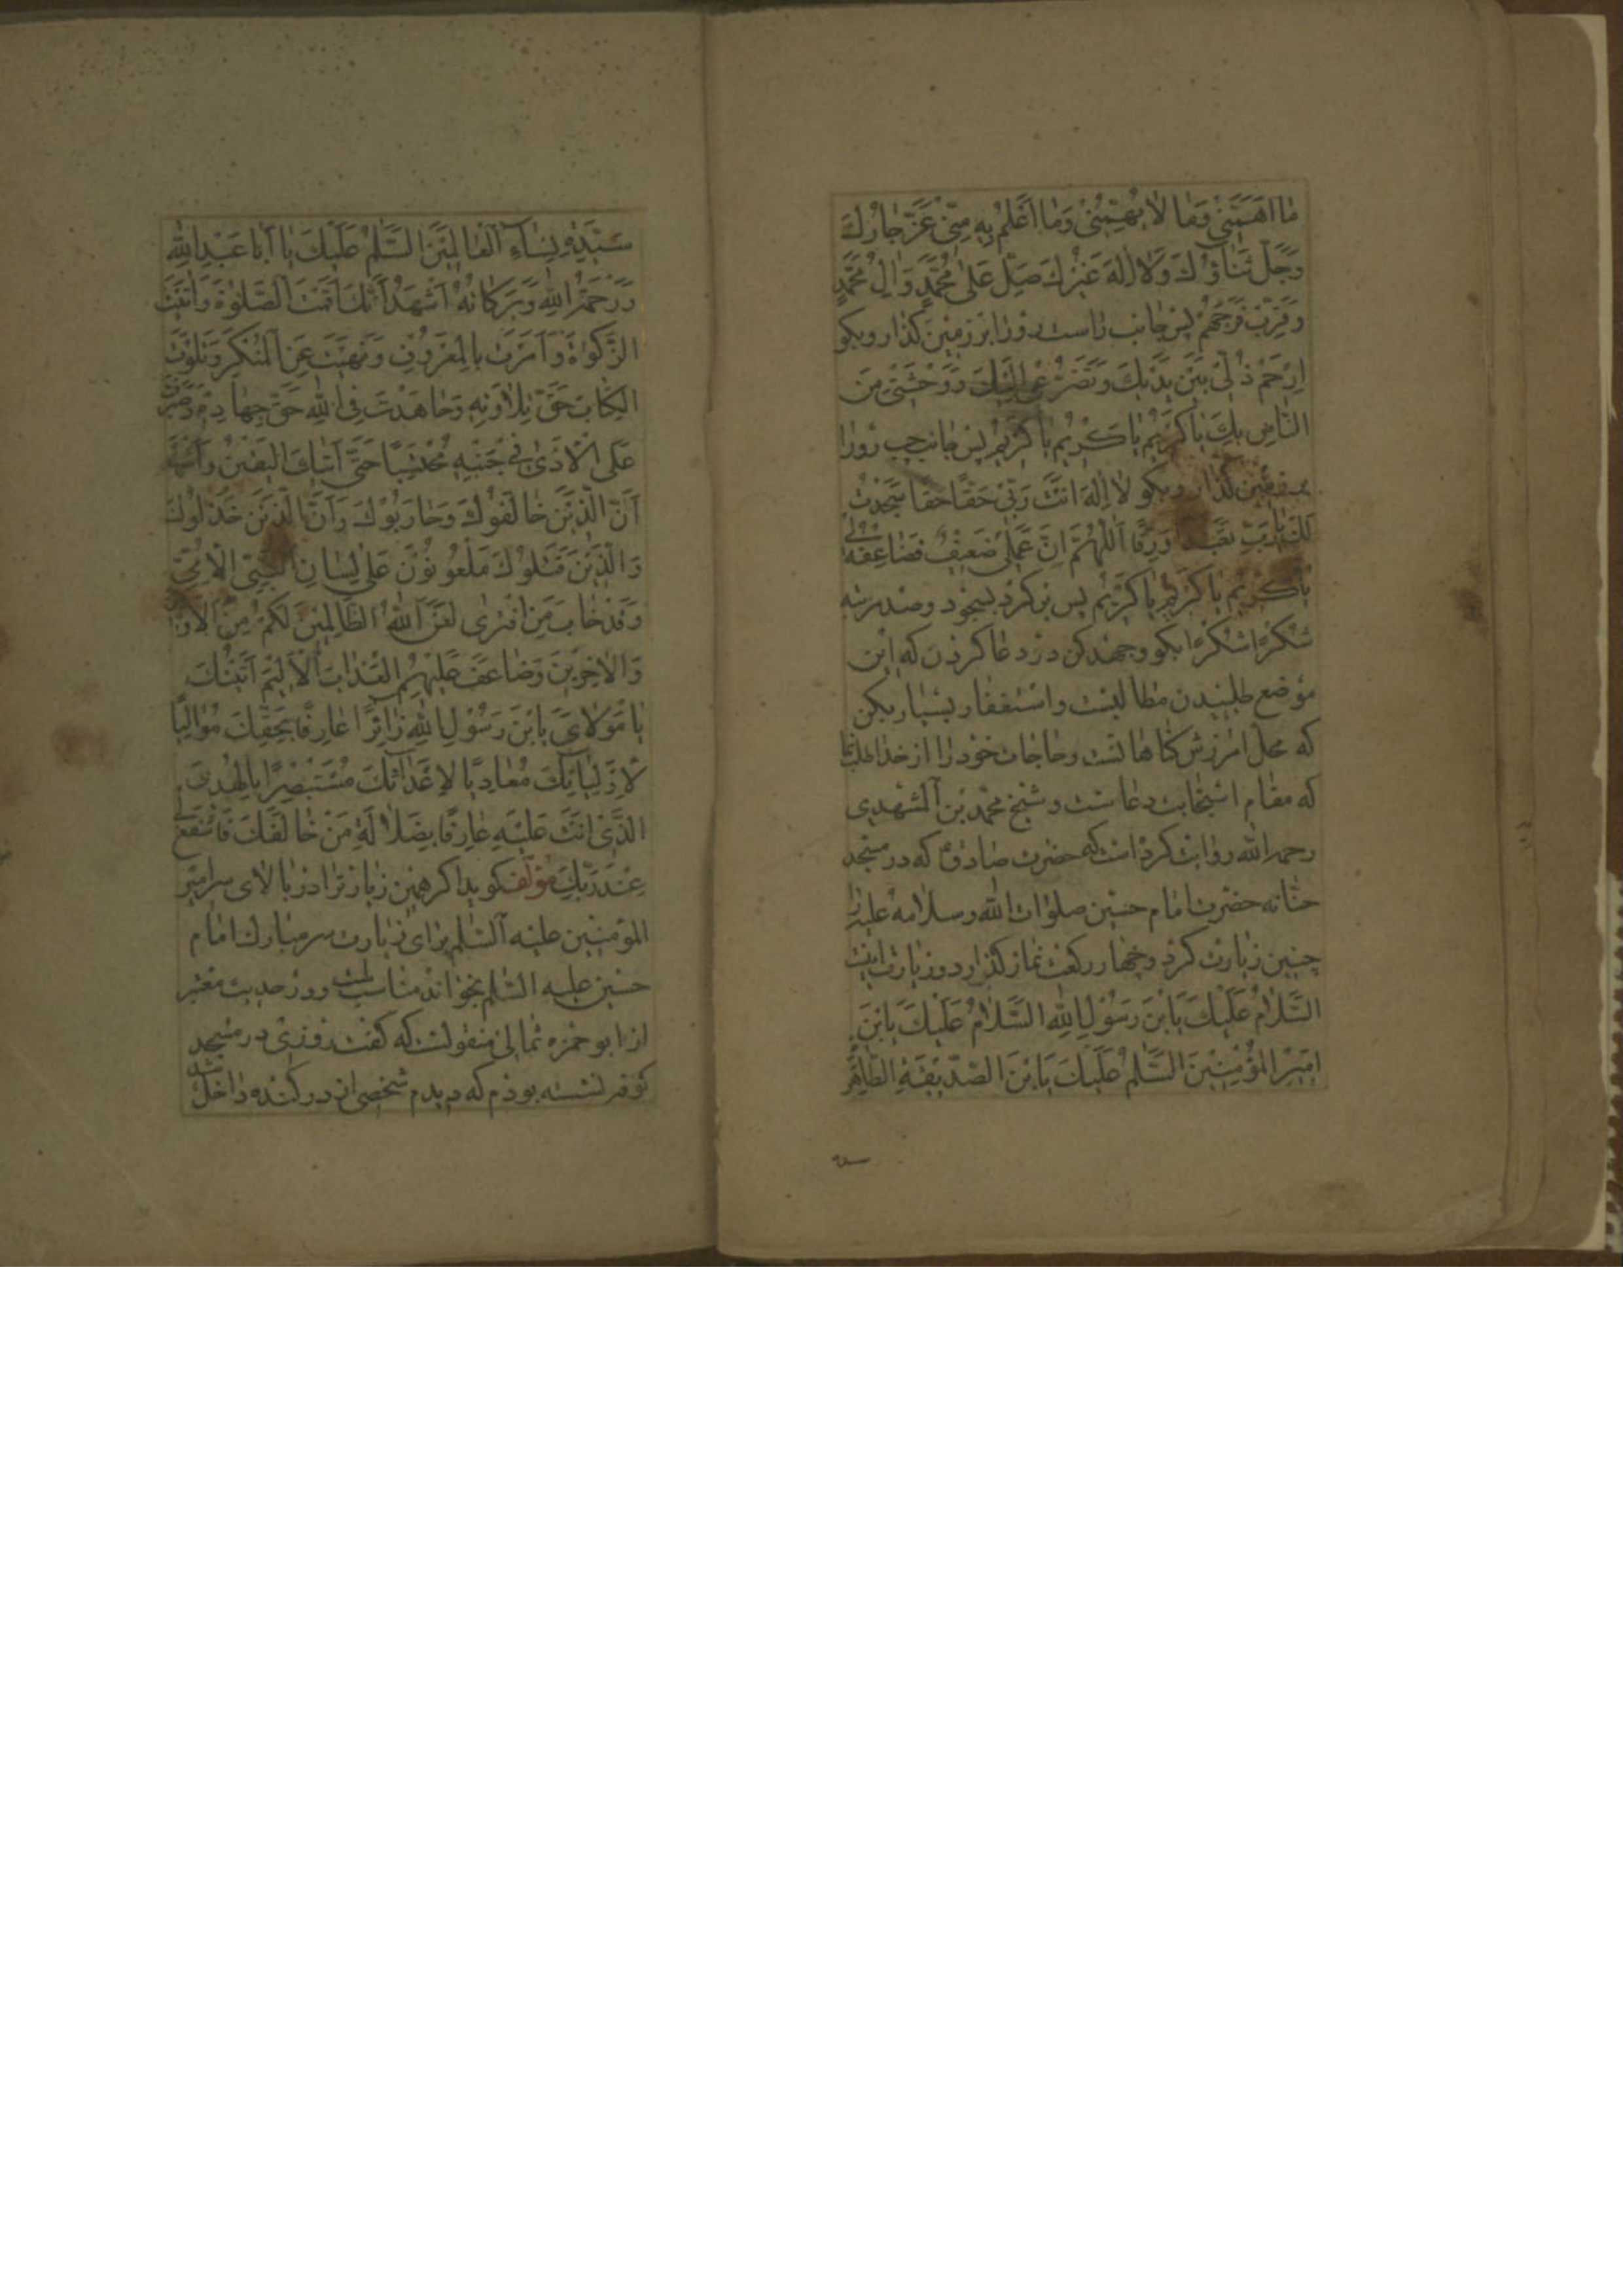 ما اَهَمَّنِی وَما لا یُهِمُّنی وَما اَعْلَمُ بِهِ مِنّی عَزَّ جارُكَ
وَجَلَّ ثَناؤُكَ وَلا اِلهَ غَیْرُكَ صَلِّ عَلی مُحَمَّدٍ وَالِ مُحَمَّدٍ
وَقَرِّبْ فَرَجَهُمْ پس جانب راست رو را بر زمین کذار و بکو
اِرْحَمْ ذُلّی بَیْنَ یَدَیْكَ وَتَضَرُّعی اِلَیْكَ وَوَحْشَتی مِنَ
النّاسِ بِكَ یا كَریمُ یا كَریمُ یا كَریمُ پس جانب چپ رو را
بر زمین کذار و بکو لا اِلهَ اَنْتَ رَبّی حَقًّا حَقًّا سَجَدْتُ
لَكَ یا رَبِّ تَعَبُّدًا وَرِقًّا اَللّهُمَّ اِنَّ عَمَلی ضَعیفٌ فَضاعِفْهُ لی
یا كَریمُ یا كَریمُ یا كَریمُ پس بر کرد بسجود و صد مرتبه
شُكْرًا شُكْرًا بکو و جهد کن در دعا کردن که این
موضع طلبیدن مطالبست و استغفار بسیار بکن
که محل امرزش کناهانست و حاجات خود را از خدا طلب نما
که مقام استجابت دعاست و شیخ محمد بن المشهدی
رحمه الله روایت کرده است که حضرت صادق ع که در مسجد
حنّانه حضرت امام حسین صلوات الله وسلامه علیه را
چنین زیارت کرد و چهار رکعت نماز کذارد و زیارت اینست
اَلسَّلامُ عَلَیْكَ یَابْنَ رَسُولِ اللهِ السَّلامُ عَلَیْكَ یَابْنَ
اَمیرِ الْمُؤْمِنینَ السَّلامُ عَلَیْكَ یَابْنَ الصِّدّیقَةِ الطّاهِرَةِ
سَیِّدَةِ نِساءِ الْعالَمینَ السَّلامُ عَلَیْكَ یا اَبا عَبْدِ اللهِ
وَرَحْمَةُ اللهِ وَبَرَكاتُهُ اَشْهَدُ اَنَّكَ اَقَمْتَ الصَّلوةَ وَاتَیْتَ
الزَّكوةَ وَاَمَرْتَ بِالْمَعْرُوفِ وَنَهَیْتَ عَنِ الْمُنْكَرِ وَتَلَوْتَ
الْكِتابَ حَقَّ تِلاوَتِهِ وَجاهَدْتَ فِی اللهِ حَقَّ جِهادِهِ وَصَبَرْتَ
عَلَی الْاَذی فی جَنْبِهِ مُحْتَسِبًا حَتّی اَتیكَ الْیَقینُ وَاَشْهَدُ
اَنَّ الَّذینَ خالَفُوكَ وَحارَبُوكَ وَاَنَّ الَّذینَ خَذَلُوكَ
وَالَّذینَ قَتَلُوكَ مَلْعُونُونَ عَلی لِسانِ النَّبِیِّ الْاُمِّیِّ
وَقَدْ خابَ مَنِ افْتَری لَعَنَ اللهُ الظّالِمینَ لَكُمْ مِنَ الْاَوَّلینَ
وَالْاخِرینَ وَضاعَفَ عَلَیْهِمُ الْعَذابَ الْاَلیمَ اَتَیْتُكَ
یا مَوْلایَ یَابْنَ رَسُولِ اللهِ زائِرًا عارِفًا بِحَقِّكَ مُوالِیًا
لِاَوْلِیائِكَ مُعادِیًا لِاَعْدائِكَ مُسْتَبْصِرًا بِالْهُدَی
الَّذی اَنْتَ عَلَیْهِ عارِفًا بِضَلالَةِ مَنْ خالَفَكَ فَاشْفَعْ لی
عِنْدَ رَبِّكَ مؤلف کوید اکر همین زیارترا در بالای سر امیر
المؤمنین علیه السّلم برای زیارت سر مبارك امام
حسین علیه السّلم بخواند مناسب است و در حدیث معتبر
از ابو حمزه ثمالی منقولست که کفت روزی در مسجد
کوفه نشسته بودم که دیدم شخصی از در کنده داخل شد